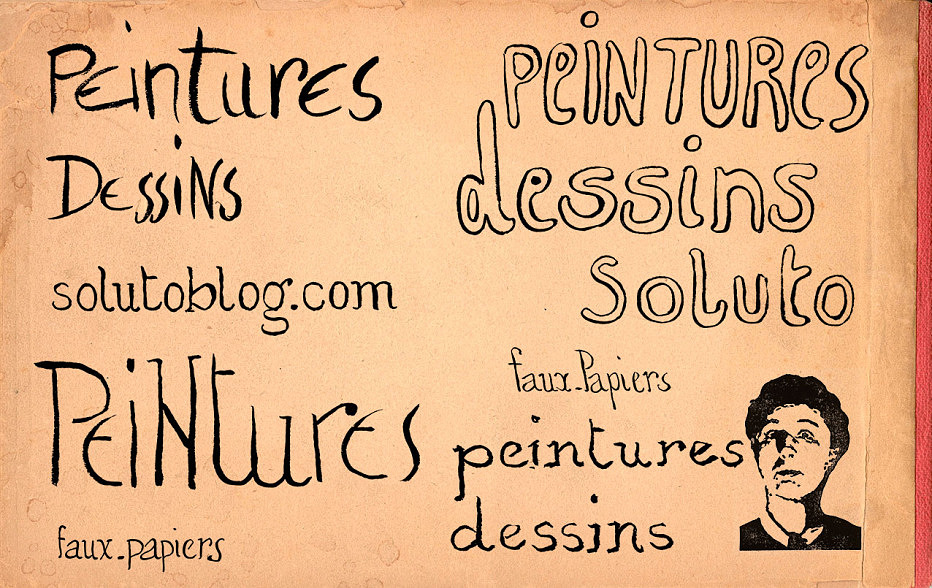 Peintures
Dessins
solutoblog.com
Peintures
faux-papiers
peintures
dessins
Soluto
faux-Papiers
peintures
dessins